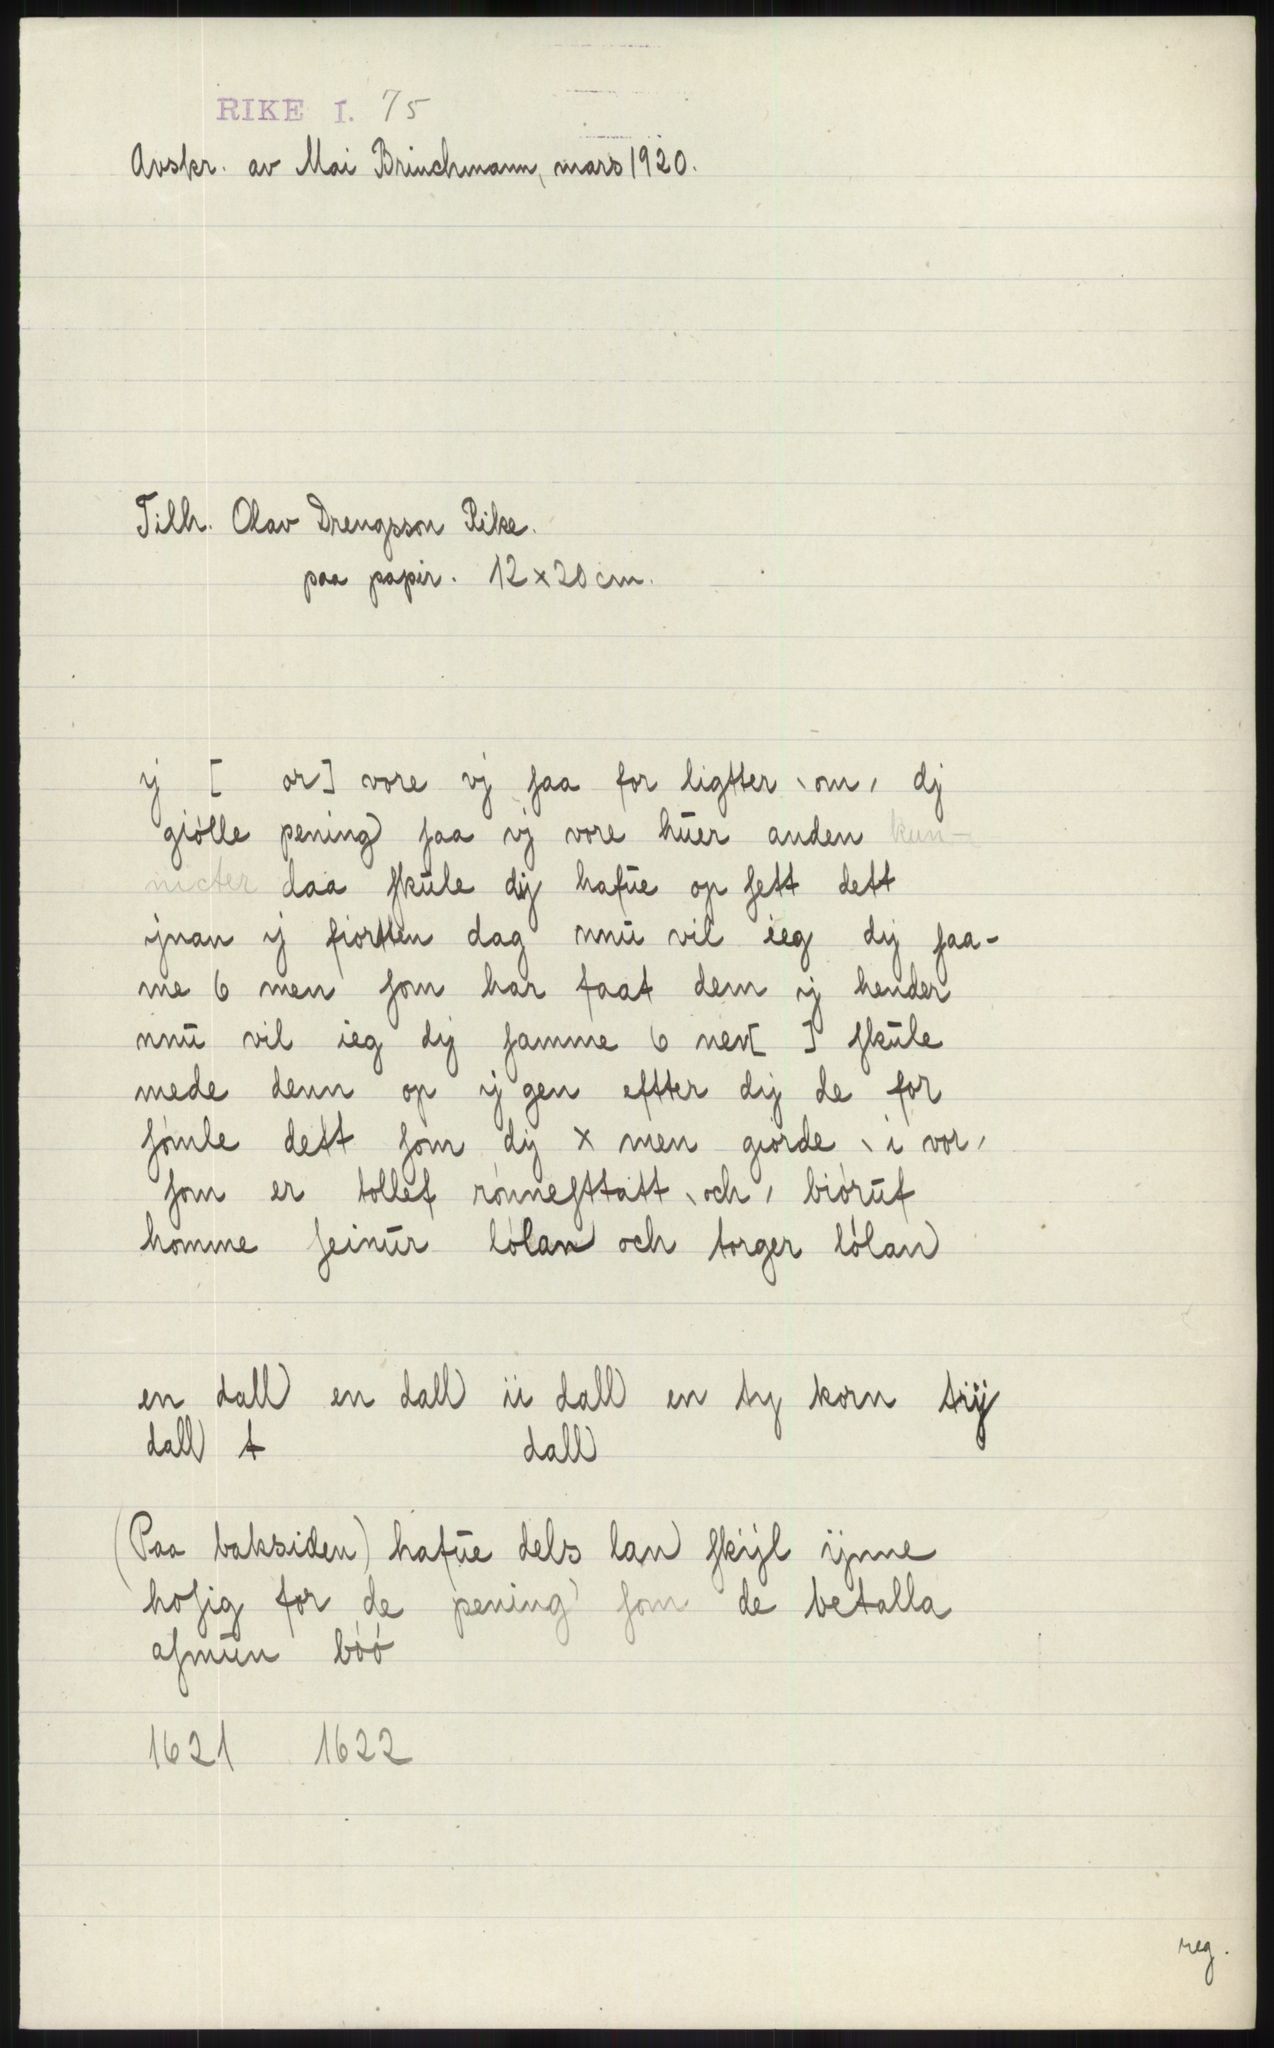 RIKE I. 75
Avskr. av Mai Brinchmann, mars 1920.
Tilh. Olav Drengsson Rike.
paa papir. 12 x 20 cm.
ij [ or] vore vj saa for ligtter ˎ om ˏ dj
giólle pening saa vj vore hūer anden kun-
nicter daa skūle dij hafūe op sett dett
ijnan ij fiortten dag nnū vil ieg dij saa-
me 6 men som har faat dem ij hender
nnū vil ieg dij samme 6 nen[ ] skūle
mede denn op ij gen eftter dij de for
sómle dett som dij x men giorde ˎ i vor ˏ
som er tollef rónnesttatt ˎ och ˏ bióruf
homme seinūr lólan och torger lólan
en dall en dall ii dall en ty korn tiij
dall t dall
(Paa baksiden) hafūe dels lan skijl ijnne
hosig for de pening som de betalla
asmūn bóó
1621 1622
reg.